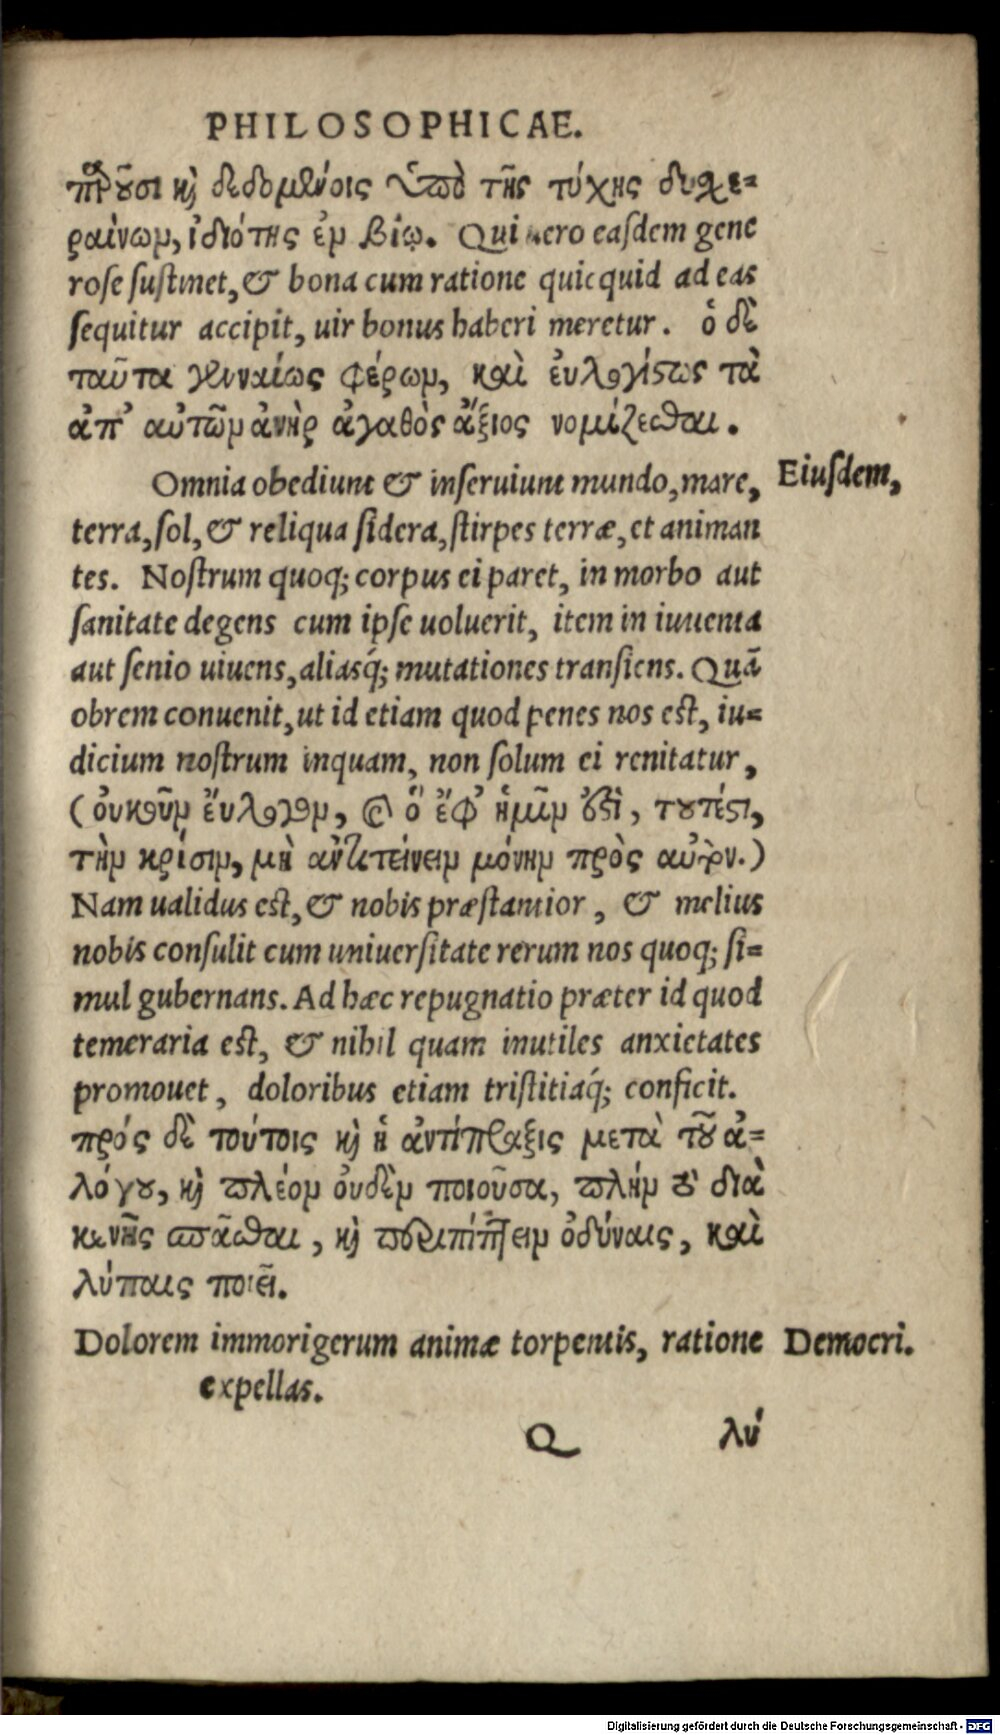 PHILOSOPHICAE.
παροῦσι κὶ δεδομένοις ὑπὸ τῆς τύχης δυσχε=
ραίνωμ, ἰδιότης ἐμ βίῳ. Qui uero easdem gene
rose sustinet, & bona cum ratione quicquid ad eas
sequitur accipit, uir bonus haberi meretur. ὁ δὲ
ταῦτα γενναίως φέρωμ, καὶ ἐυλογίστως τὰ
ἀπ' αὐτῶμ ἀνὴρ ἀγαθὸς ἄξιος νομίζεσθαι.
Omnia obediunt & inseruiunt mundo, mare, Eiusdem,
terra, sol, & reliqua sidera, stirpes terræ, et animan
tes. Nostrum quoq; corpus ei paret, in morbo aut
sanitate degens cum ipse uoluerit, item in iuuenta
aut senio uiuens, aliasq́; mutationes transiens. Quã
obrem conuenit, ut id etiam quod penes nos est, iu=
dicium nostrum inquam, non solum ei renitatur,
(ὀυκοῦμ ἔυλογομ, ὃ ἔφ' ἡμῖμ ἐστὶ, τουτέστι,
τὴμ κρίσιμ, μὴ ἀντιτείνειμ μόνημ πρὸς αὐτόν.)
Nam ualidus est, & nobis præstantior, & melius
nobis consulit cum uniuersitate rerum nos quoq; si=
mul gubernans. Ad hæc repugnatio præter id quod
temeraria est, & nihil quam inutiles anxietates
promouet, doloribus etiam tristitiaq́; conficit.
πρός δὲ τούτοις κὶ ἡ ἀντίπραξις μετὰ τοῦ ἀ=
λόγου, κὶ πλέομ ὀυδὲμ ποιοῦσα, πλήμ τοῦ διὰ
κενῆς σπᾶσθαι, κὶ περιπίπτειμ ὀδύναις, καὶ
λύπαις ποιεῖ.
Dolorem immorigerum animæ torpentis, ratione Democri.
expellas.
Q λύ
Digitalisierung gefördert durch die Deutsche Forschungsgemeinschaft - DFG